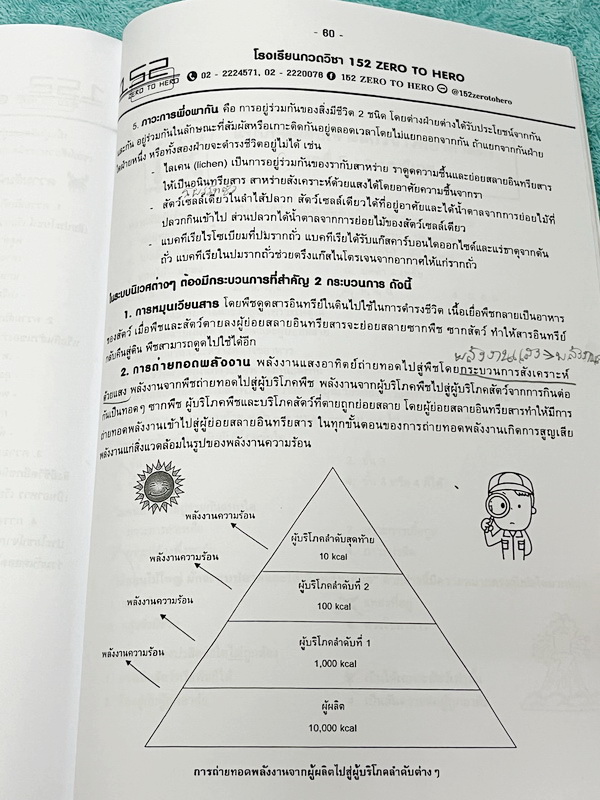 - 60 -
โรงเรียนกวดวิชา 152 ZERO TO HERO
152
ZERO TO HERO
02 - 2224571, 02 - 2220076 152 ZERO TO HERO @152zerotohero
5. ภาวะการพึ่งพากัน คือ การอยู่ร่วมกันของสิ่งมีชีวิต 2 ชนิด โดยต่างฝ่ายต่างได้รับประโยชน์จากกัน
และกัน อยู่ร่วมกันในลักษณะที่สัมผัสหรือเกาะติดกันอยู่ตลอดเวลาโดยไม่แยกออกจากกัน ถ้าแยกจากกันฝ่าย
ใดฝ่ายหนึ่ง หรือทั้งสองฝ่ายจะดำรงชีวิตอยู่ไม่ได้ เช่น
- ไลเคน (lichen) เป็นการอยู่ร่วมกันของรากับสาหร่าย ราดูดความชื้นและย่อยสลายอินทรียสาร
ให้เป็นอนินทรียสาร สาหร่ายสังเคราะห์ด้วยแสงได้โดยอาศัยความชื้นจากรา
- สัตว์เซลล์เดียวในลำไส้ปลวก สัตว์เซลล์เดียวได้ที่อยู่อาศัยและได้น้ำตาลจากการย่อยไม้ที่
ปลวกกินเข้าไป ส่วนปลวกได้น้ำตาลจากการย่อยไม้ของสัตว์เซลล์เดียว
- แบคทีเรียไรโซเบียมที่ปมรากถั่ว แบคทีเรียได้รับแก๊สคาร์บอนไดออกไซด์และแร่ธาตุจากต้น
ถั่ว แบคทีเรียในปมรากถั่วช่วยตรึงแก๊สไนโตรเจนจากอากาศให้แก่รากถั่ว
ในระบบนิเวศต่างๆ ต้องมีกระบวนการที่สำคัญ 2 กระบวนการ ดังนี้
1. การหมุนเวียนสาร โดยพืชดูดสารอินทรีย์ในดินไปใช้ในการดำรงชีวิต เนื้อเยื่อพืชกลายเป็นอาหาร
ของสัตว์ เมื่อพืชและสัตว์ตายลงผู้ย่อยสลายอินทรียสารจะย่อยสลายซากพืช ซากสัตว์ ทำให้สารอินทรีย์
กลับคืนสู่ดิน พืชสามารถดูดไปใช้ได้อีก
พลังงานแสง→พลังงาน
2. การถ่ายทอดพลังงาน พลังงานแสงอาทิตย์ถ่ายทอดไปสู่พืชโดยกระบวนการสังเคราะห์
ด้วยแสง พลังงานจากพืชถ่ายทอดไปสู่ผู้บริโภคพืช พลังงานจากผู้บริโภคพืชไปสู่ผู้บริโภคสัตว์จากการกินต่อ
กันเป็นทอดๆ ซากพืช ผู้บริโภคพืชและบริโภคสัตว์ที่ตายถูกย่อยสลาย โดยผู้ย่อยสลายอินทรียสารทำให้มีการ
ถ่ายทอดพลังงานเข้าไปสู่ผู้ย่อยสลายอินทรียสาร ในทุกขั้นตอนของการถ่ายทอดพลังงานเกิดการสูญเสีย
พลังงานแก่สิ่งแวดล้อมในรูปของพลังงานความร้อน
พลังงานความร้อน
ผู้บริโภคลำดับสุดท้าย
10 kcal
พลังงานความร้อน
ผู้บริโภคลำดับที่ 2
100 kcal
พลังงานความร้อน
ผู้บริโภคลำดับที่ 1
1,000 kcal
พลังงานความร้อน
ผู้ผลิต
10,000 kcal
การถ่ายทอดพลังงานจากผู้ผลิตไปสู่ผู้บริโภคลำดับต่าง ๆ